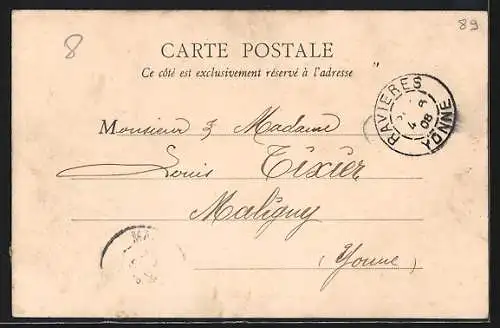 8
89
CARTE POSTALE
Ce côté est exclusivement réservé à l'adresse
RAVIERES
4
08
YONNE
Monsieur & Madame
Louis Tixier
Maligny
(Yonne)
MA